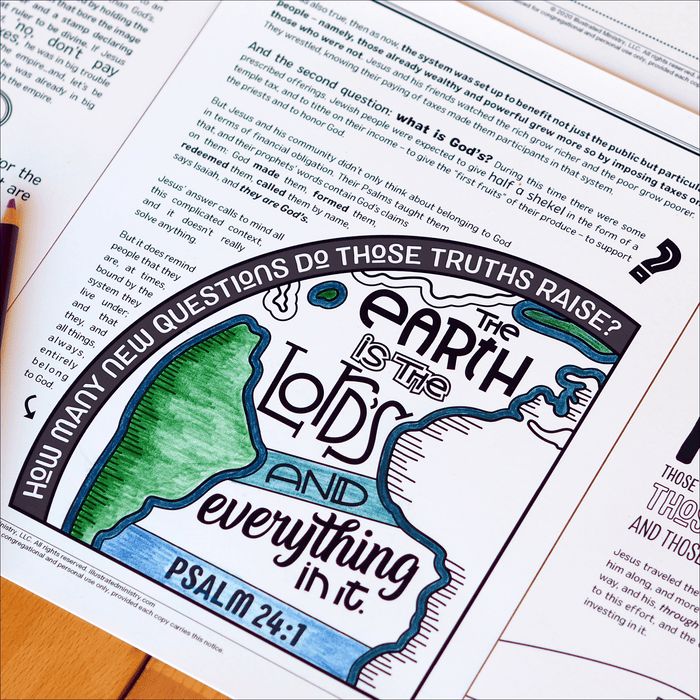 God's.
by holding the
that bore the image
and a stamp declaring
ruler to be divine. If Jesus
no, don't pay
taxes, he was in big trouble
the empire—and, let's be
he was already in big
with the empire.
for the
are
© 2020 Illustrated Ministry, LLC. All rights reserved.
for congregational and personal use only, provided each
is also true, then as now, the system was set up to benefit not just the public but particular
people – namely, those already wealthy and powerful grew more so by imposing taxes on
those who were not. Jesus and his friends watched the rich grow richer and the poor grow poorer.
They wrestled, knowing their paying of taxes made them participants in that system.
And the second question: what is God's? During this time there were some
prescribed offerings. Jewish people were expected to give half a shekel in the form of a
temple tax, and to tithe on their income – to give the "first fruits" of their produce – to support
the priests and to honor God.
But Jesus and his community didn't only think about belonging to God
in terms of financial obligation. Their Psalms taught them
that, and their prophets' words contain God's claims
on them: God made them, formed them,
redeemed them, called them by name,
says Isaiah, and they are God's.
Jesus' answer calls to mind all
this complicated context,
and it doesn't really
solve anything.
But it does remind
people that they
are, at times,
bound by the
system they
live under;
and that
they, and
all things,
always,
entirely
belong
to God.
?
HOW MANY NEW QUESTIONS DO THOSE TRUTHS RAISE?
THE
EARTH
IS THE
LORD'S
AND
everything
in it.
PSALM 24:1
Ministry, LLC. All rights reserved. illustratedministry.com
congregational and personal use only, provided each copy carries this notice.
THOSE
THOS
AND THOSE
Jesus traveled the
him along, and more
way, and his, through
to this effort, and the
investing in it.